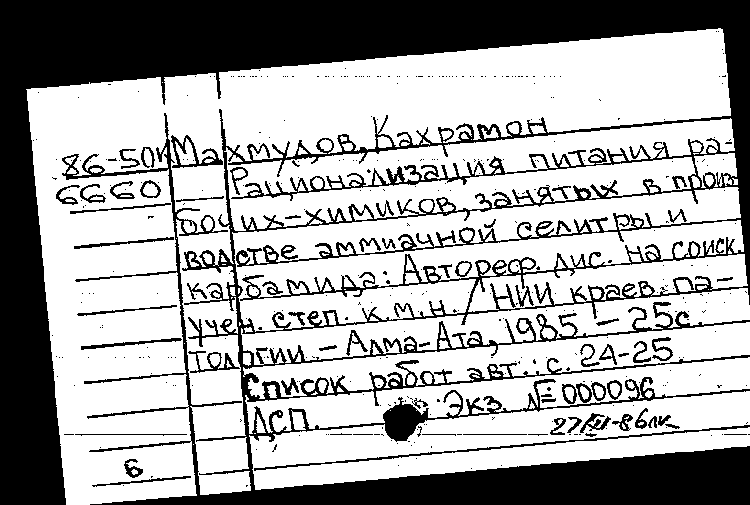 86-50К Махмудов, Кахрамон
6660 Рационализация питания ра-
бочих-химиков, занятых в произ-
водстве аммиачной селитры и
карбамида: Автореф. дис. на соиск.
учен. степ. к.м.н. / НИИ краев. па-
тологии. - Алма-Ата, 1985. - 25с.
Список работ авт.: с. 24-25.
ДСП. Экз. № 000096.
6